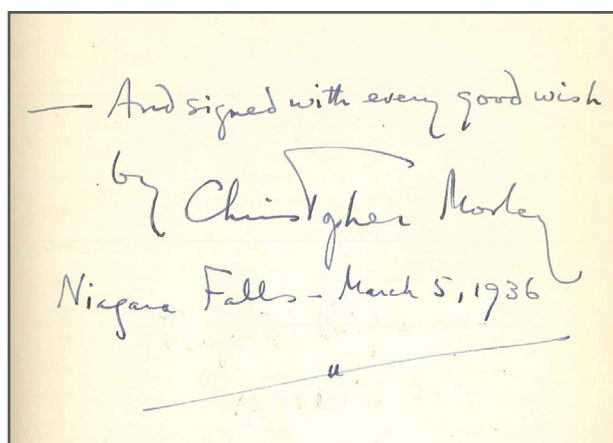 — And signed with every good wish
by Christopher Morley
Niagara Falls – March 5, 1936
"